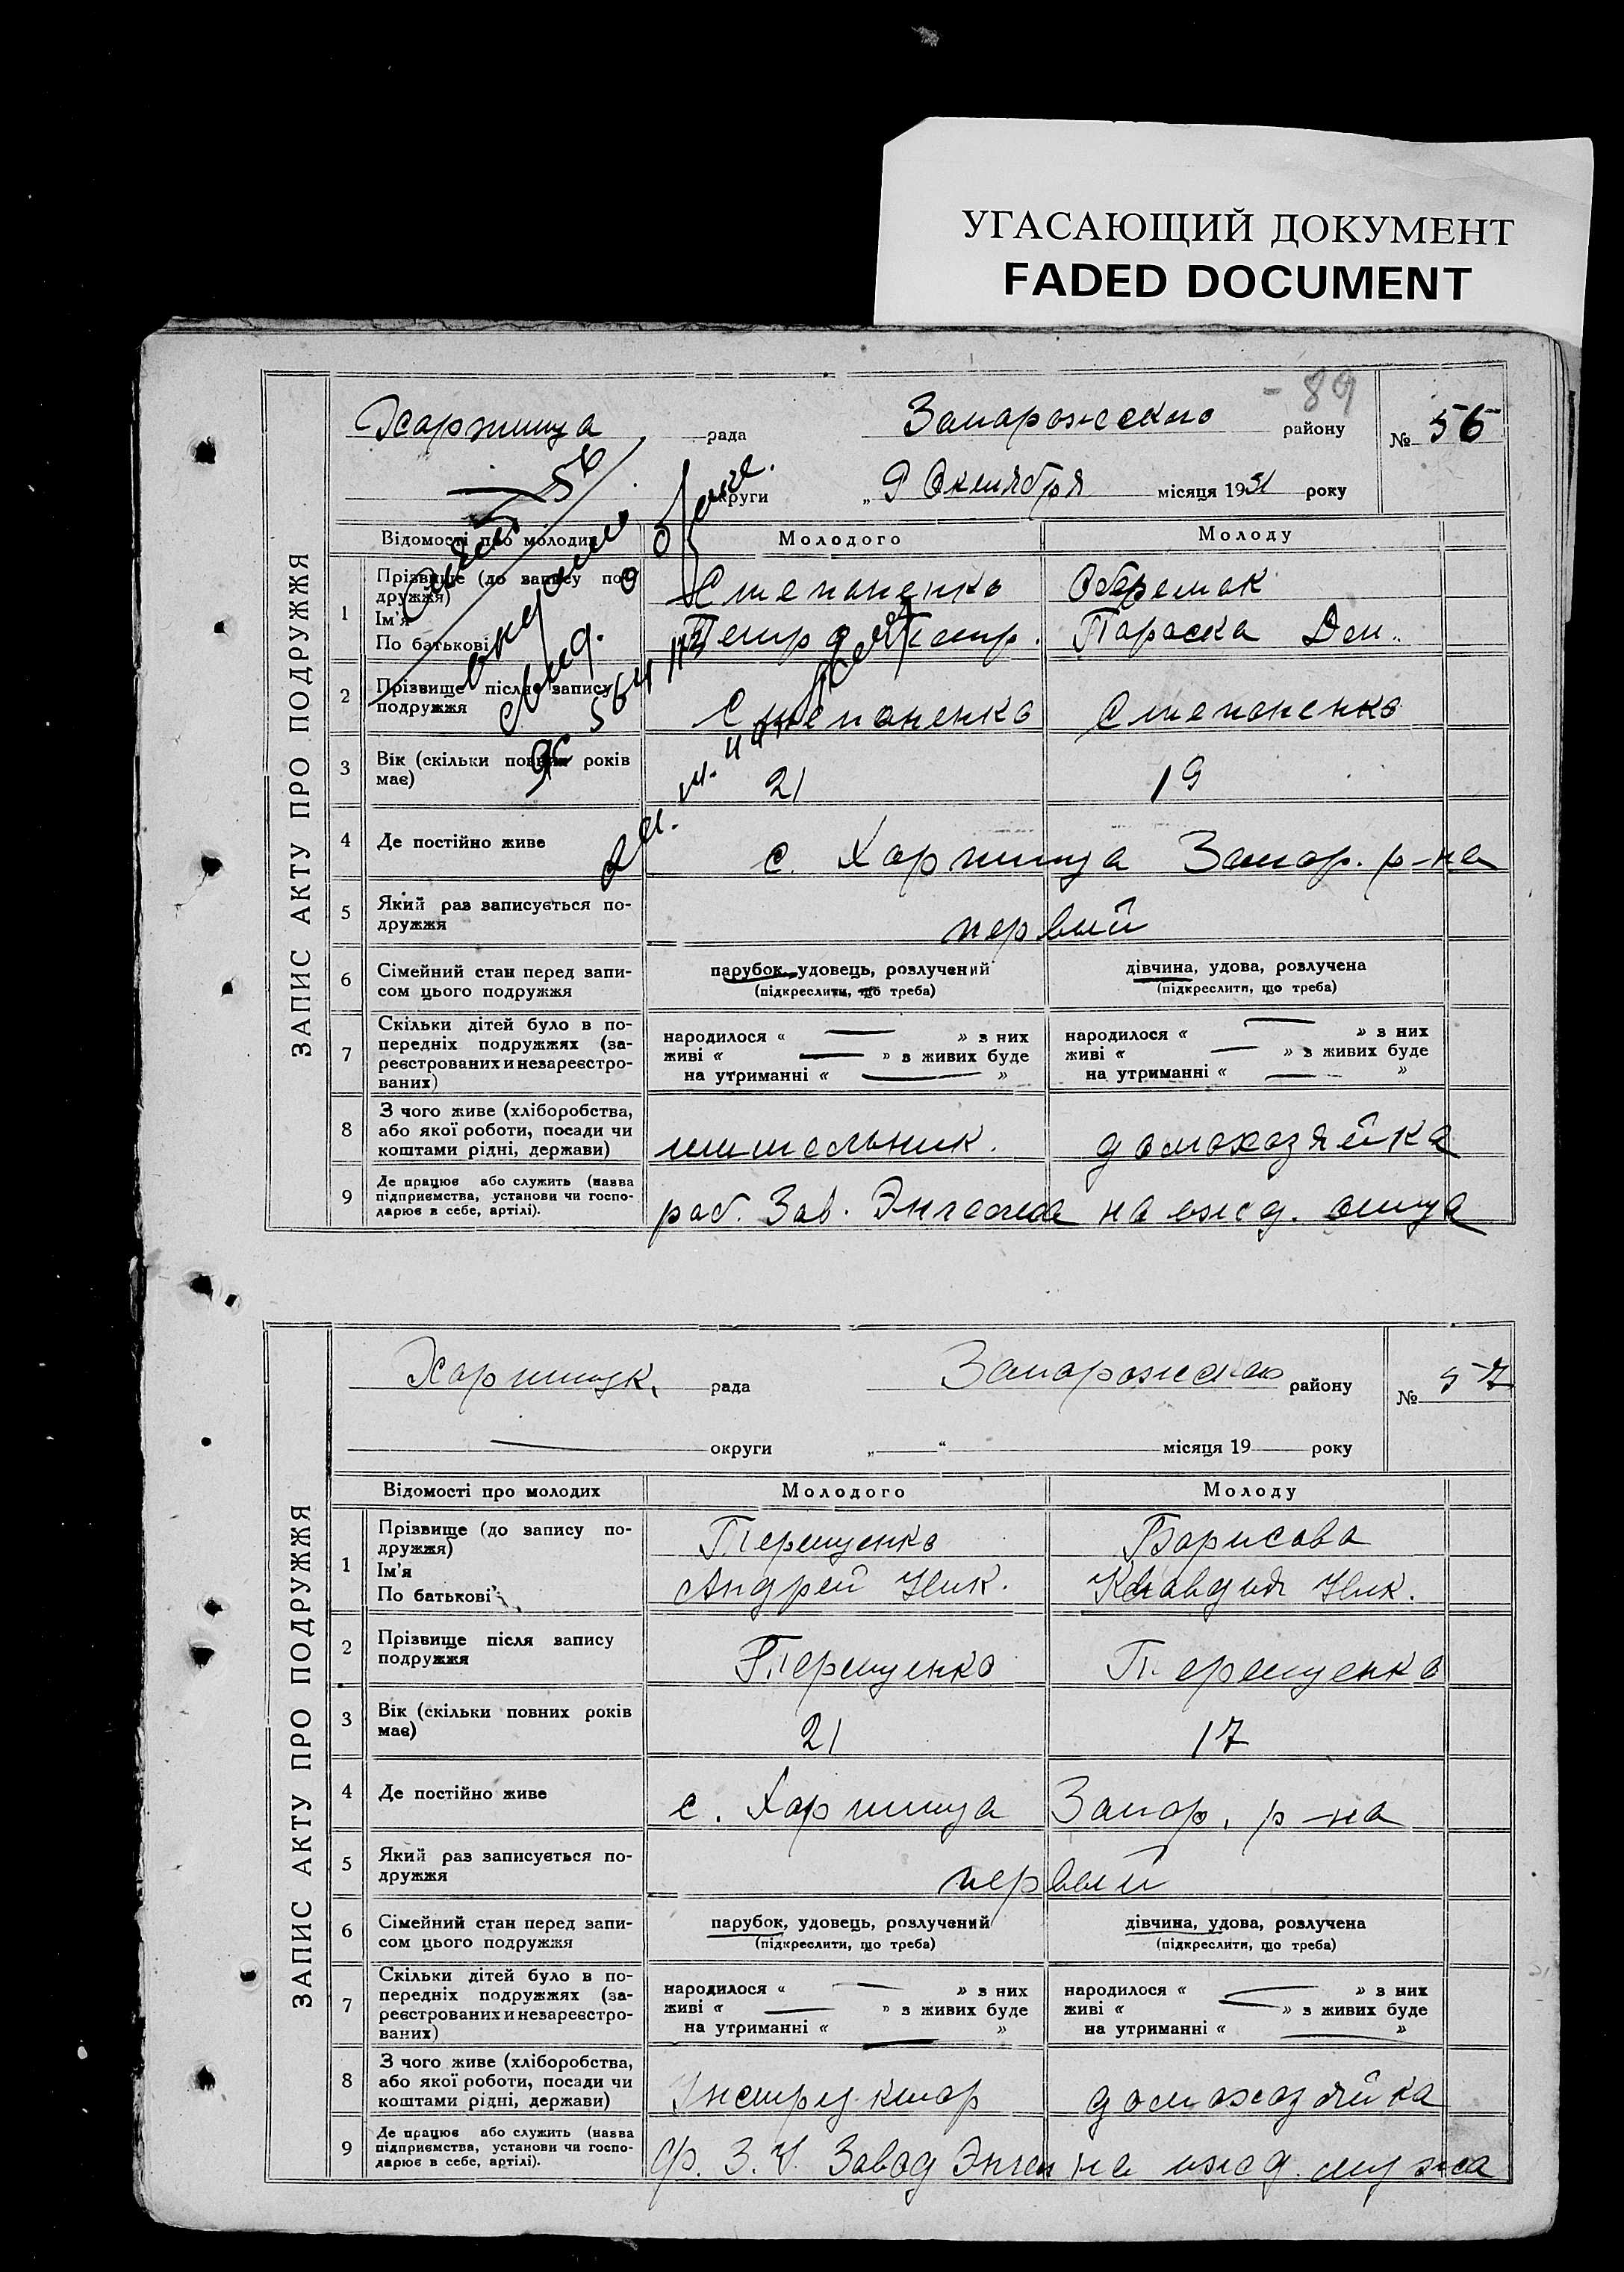 УГАСАЮЩИЙ ДОКУМЕНТ
FADED DOCUMENT
ЗАПИС АКТУ ПРО ПОДРУЖЖЯ
- 89
рада Запорожского району № 56
округи „9 Октября місяця 1931 року
Відомості про молодих Молодого Молоду
1 Прізвище (до запису по-
дружжя) Степаненко Оберемок
Ім'я
По батькові Петр Параска Дем.
2 Прізвище після запису
подружжя Степаненко Степаненко
3 Вік (скільки повних років
має) 21 19
4 Де постійно живе с. Хортица Запор. р-на
5 Який раз записується по-
дружжя первый
6 Сімейний стан перед запи-
сом цього подружжя парубок, удовець, розлучений дівчина, удова, розлучена
(підкреслити, що треба) (підкреслити, що треба)
7 Скільки дітей було в по-
передніх подружжях (за-
реєстрованих и незареєстро-
ваних)
народилося « — » з них народилося « — » з них
живі « — » з живих буде живі « — » з живих буде
на утриманні « — » на утриманні « — »
8 З чого живе (хліборобства,
або якої роботи, посади чи
коштами рідні, держави) домохозяйка
9 Де працює або служить (назва
підприємства, установи чи госпо-
дарює в себе, артілі). раб. Зав. Энгельса на ижд. отца
ЗАПИС АКТУ ПРО ПОДРУЖЖЯ
рада Запорожского району № 57
— округи „—“ місяця 19 року
Відомості про молодих Молодого Молоду
1 Прізвище (до запису по-
дружжя) Терещенко Борисова
Ім'я
По батькові Андрей Ник. Клавдия Ник.
2 Прізвище після запису
подружжя Терещенко Терещенко
3 Вік (скільки повних років
має) 21 17
4 Де постійно живе с. Хортица Запор. р-на
5 Який раз записується по-
дружжя первый
6 Сімейний стан перед запи-
сом цього подружжя парубок, удовець, розлучений дівчина, удова, розлучена
(підкреслити, що треба) (підкреслити, що треба)
7 Скільки дітей було в по-
передніх подружжях (за-
реєстрованих и незареєстро-
ваних)
народилося « — » з них народилося « — » з них
живі « — » з живих буде живі « — » з живих буде
на утриманні « — » на утриманні « — »
8 З чого живе (хліборобства,
або якої роботи, посади чи
коштами рідні, держави) Инструктор домохозяйка
9 Де працює або служить (назва
підприємства, установи чи госпо-
дарює в себе, артілі). Ф. З. У. Завод Энгел на ижд. мужа